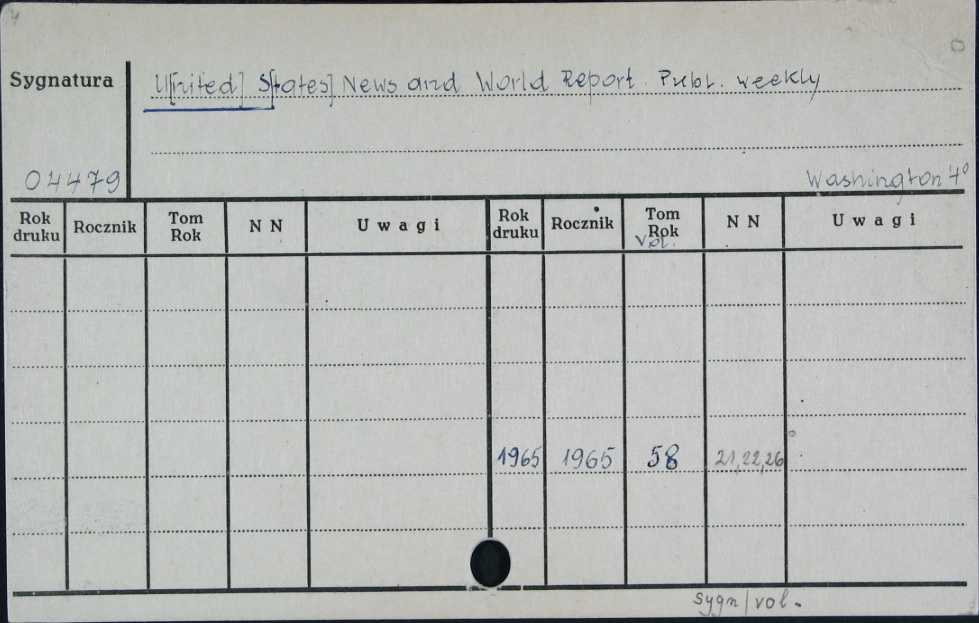 Sygnatura
U[nited] S[tates] News and World Report. Publ. weekly
04479
Washington 4⁰
Rok druku Rocznik Tom Rok N N Uwagi Rok druku Rocznik Tom Rok Vol. N N Uwagi
1965 1965 58 21,22,26
sygn/vol.